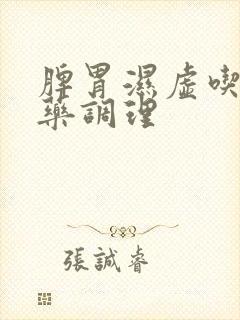 脾胃濕虛喫
藥調理
張誠睿